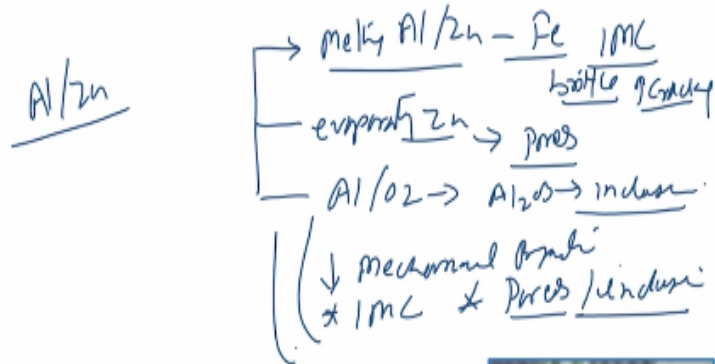 Al/Zn
→ Melting Al/Zn - Fe IMC
brittle cracking
evaporating Zn → Pores
Al/O2 → Al2O3 → inclusion
↓ mechanical properties
* IMC * Pores / inclusion